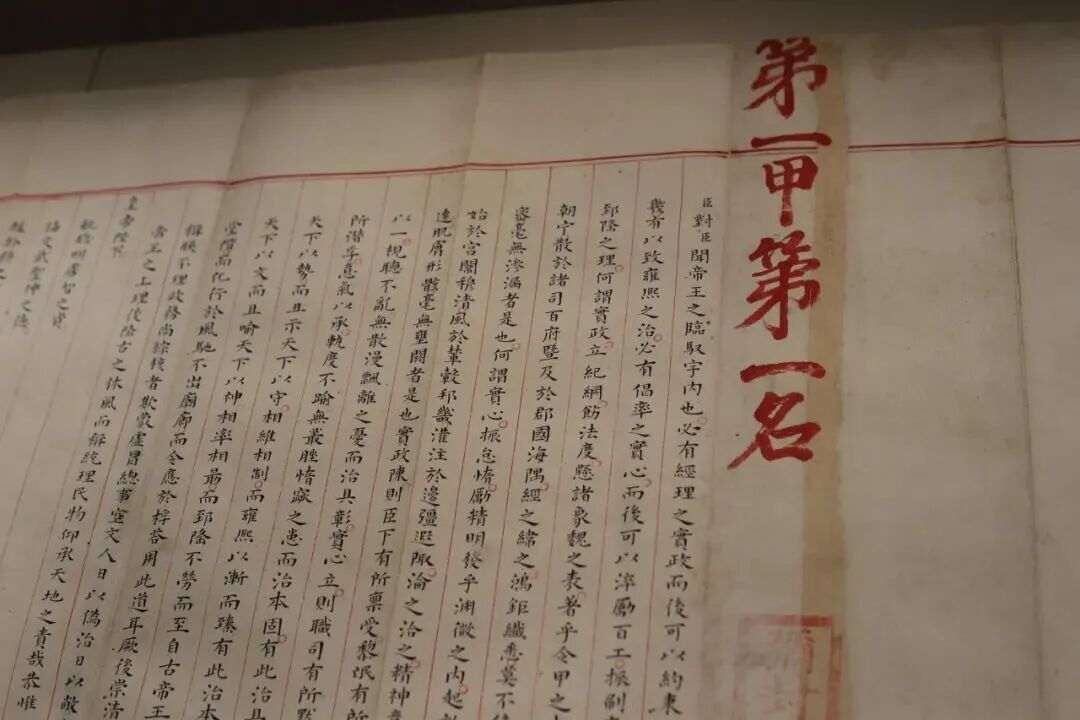 第一甲第一名
臣對臣聞帝王之臨馭宇內也必有經理之實政而後可以約束
幾有以致雍熙之治必有倡率之實心而後可以淬厲百工振刷
郅隆之理何謂實政立紀綱飭法度懸諸象魏之表著乎令甲之
朝宁散於諸司百府暨及於郡國海隅經之緯之鴻鉅纖悉莫不
審毫無滲漏者是也何謂實心振怠惰勵精明發乎淵微之內起
始於宮闈穆清風於輦轂邦畿灌注於邊疆遐陬淪之洽之精神
達肌膚形骸毫無壅閼者是也實政陳則臣下有所稟受黎氓有所
以一視聽不亂無散漫飄離之憂而治具彰實心立則職司有所
所潛孚意氣以承軌度不踰無叢脞惰窳之患而治本固有此治具
天下以勢而且示天下以守相維相制而雍熙以漸而臻有此治本
天下以文而且喻天下以神相率相最而郅隆不勞而至自古帝王
堂階而化行於風馳不出廟廊而令應於桴答用此道耳厥後崇清
穆睽不理政務尚綜核者欺蒙虛冒總事空文人日以偽治日以敝
帝王之上理後陰古之休風而稱統理民物仰承天地之責哉恭惟
皇帝陛下
聰明睿智之資
文武聖神之德